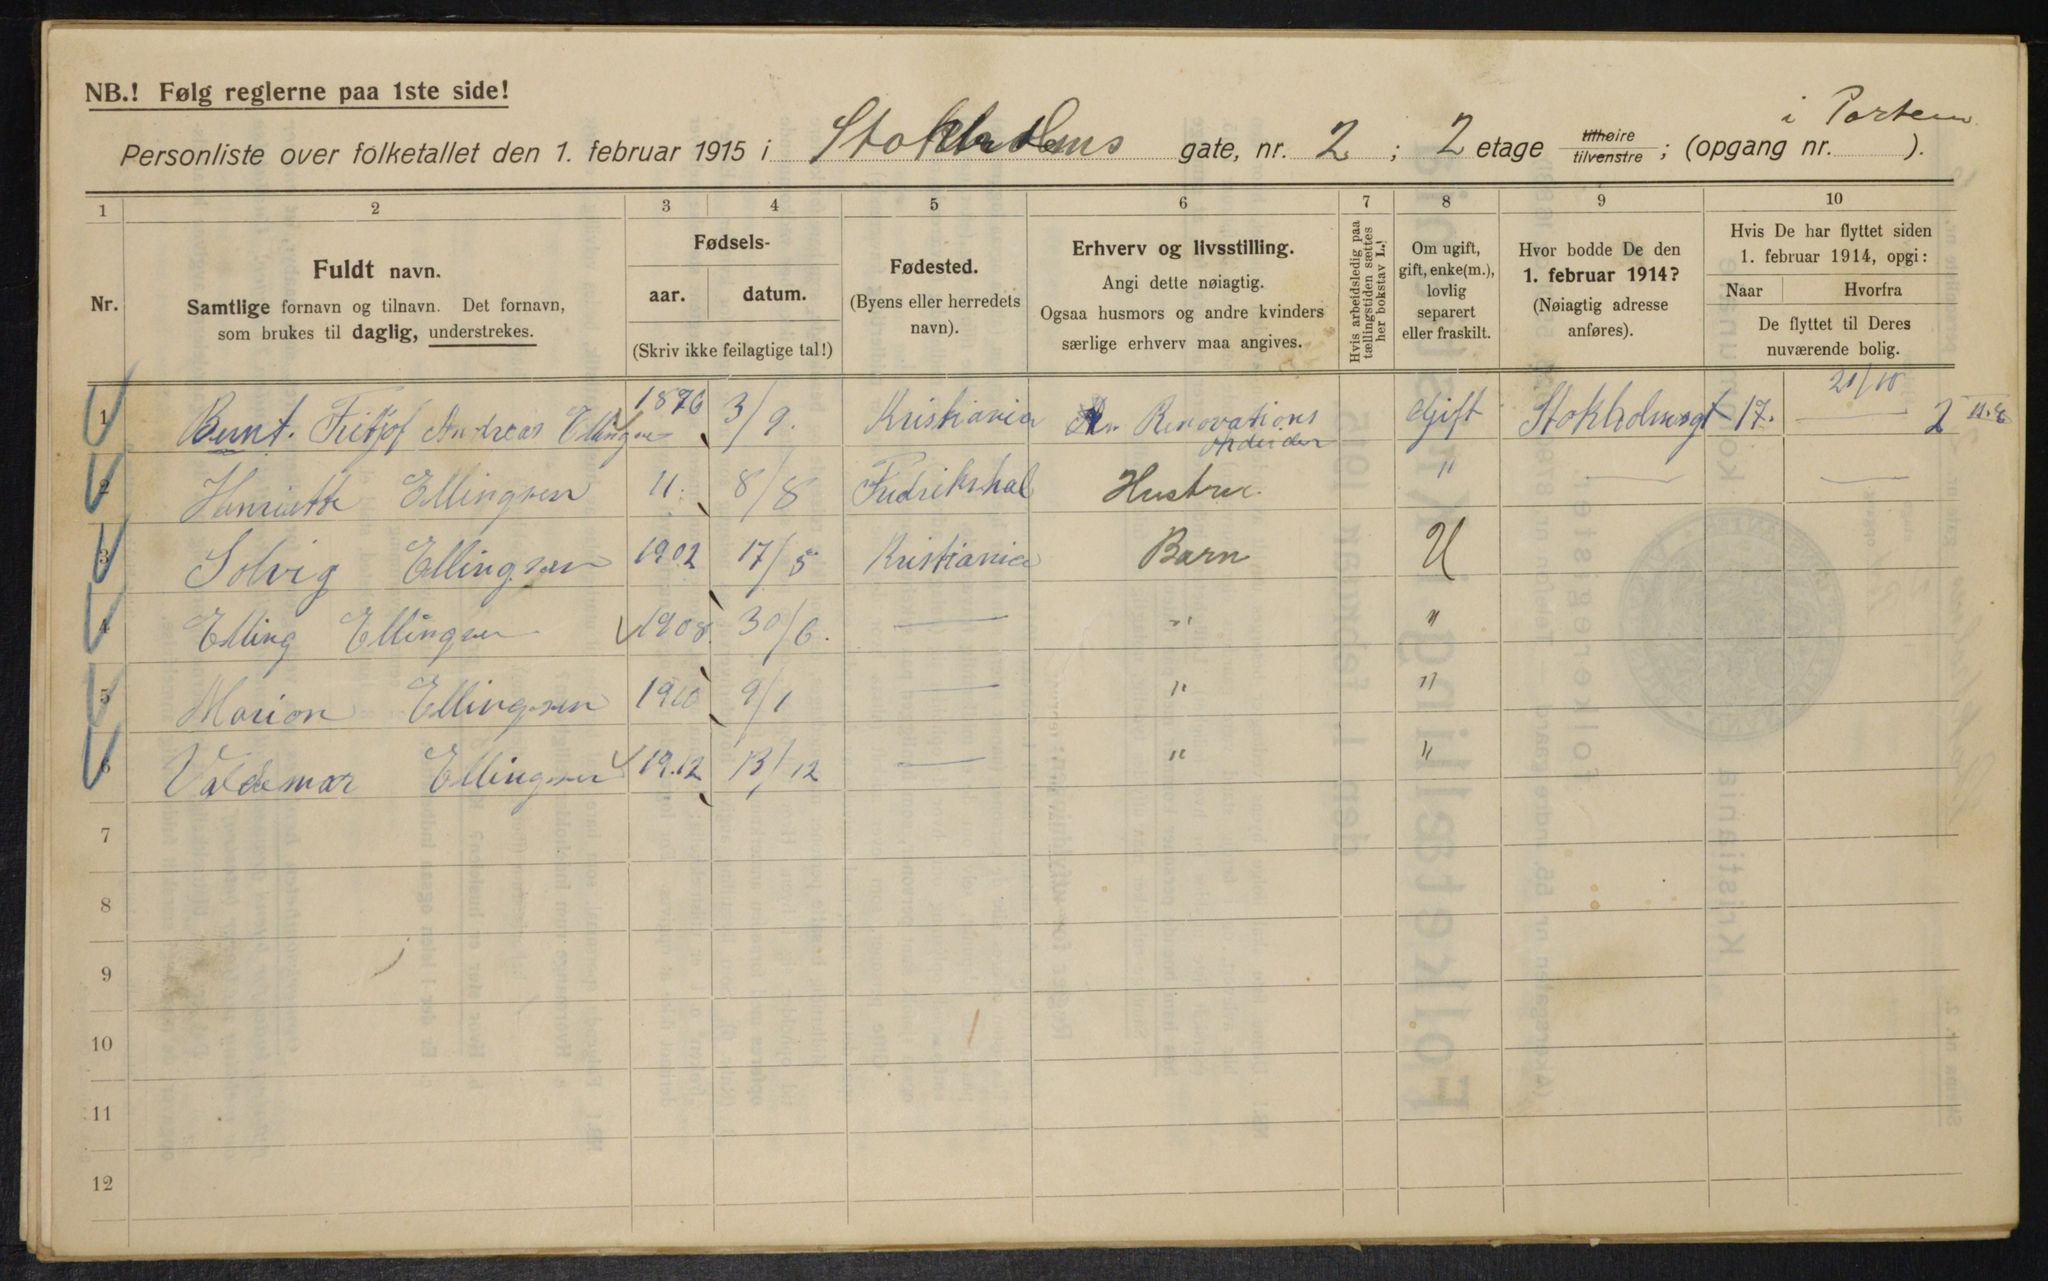 NB.! Følg reglerne paa 1ste side!
i Porten
Personliste over folketallet den 1. februar 1915 i Stokholms gate, nr. 2 ; 2 etage tilhøire tilvenstre ; (opgang nr. ).
1 2 3 4 5 6 7 8 9 10
Nr.
Fuldt navn.
Samtlige fornavn og tilnavn. Det fornavn,
som brukes til daglig, understrekes.
Fødsels-
aar. datum.
(Skriv ikke feilagtige tal!)
Fødested.
(Byens eller herredets
navn).
Erhverv og livsstilling.
Angi dette nøiagtig.
Ogsaa husmors og andre kvinders
særlige erhverv maa angives.
Hvis arbeidsledig paa
tællingstiden sættes
her bokstav L.!
Om ugift,
gift, enke(m.),
lovlig
separert
eller fraskilt.
Hvor bodde De den
1. februar 1914?
(Nøiagtig adresse
anføres).
Hvis De har flyttet siden
1. februar 1914, opgi:
Naar Hvorfra
De flyttet til Deres
nuværende bolig.
1 Bernt. Fritjof Andreas Ellingsen 1876 3/9. Kristiania Renovations Arbeider Gift Stokholmsgt 17. 21/10 2
2 Henriette Ellingsen 11 8/8 Fredrikshal Hustru. " — —
3 Solvig Ellingsen 1902 17/5 Kristiania Barn U
4 Elling Ellingsen 1908 30/6. — " "
5 Marion Ellingsen 1910 9/1 — " "
6 Valdemar Ellingsen 1912 13/12 — " "
7
8
9
10
11
12